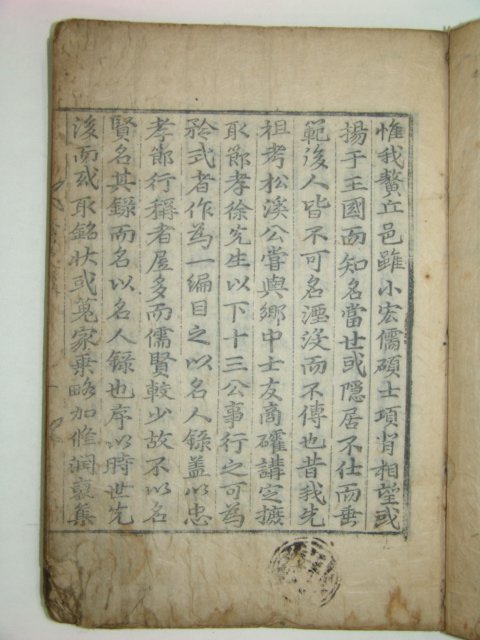 惟我鰲丘邑雖小宏儒碩士項背相望或
揚于王國而知名當世或隱居不仕而垂
範後人皆不可名湮沒而不傳也昔我先
祖考松溪公嘗與鄉中士友商確講定摭
取節孝徐先生以下十三公事行之可為
矜式者作為一編目之以名人錄蓋以忠
孝節行稱者居多而儒賢較少故不以名
賢名其錄而名以名人錄也序以時世先
後而或取銘狀或蒐家乘略加脩潤裒集